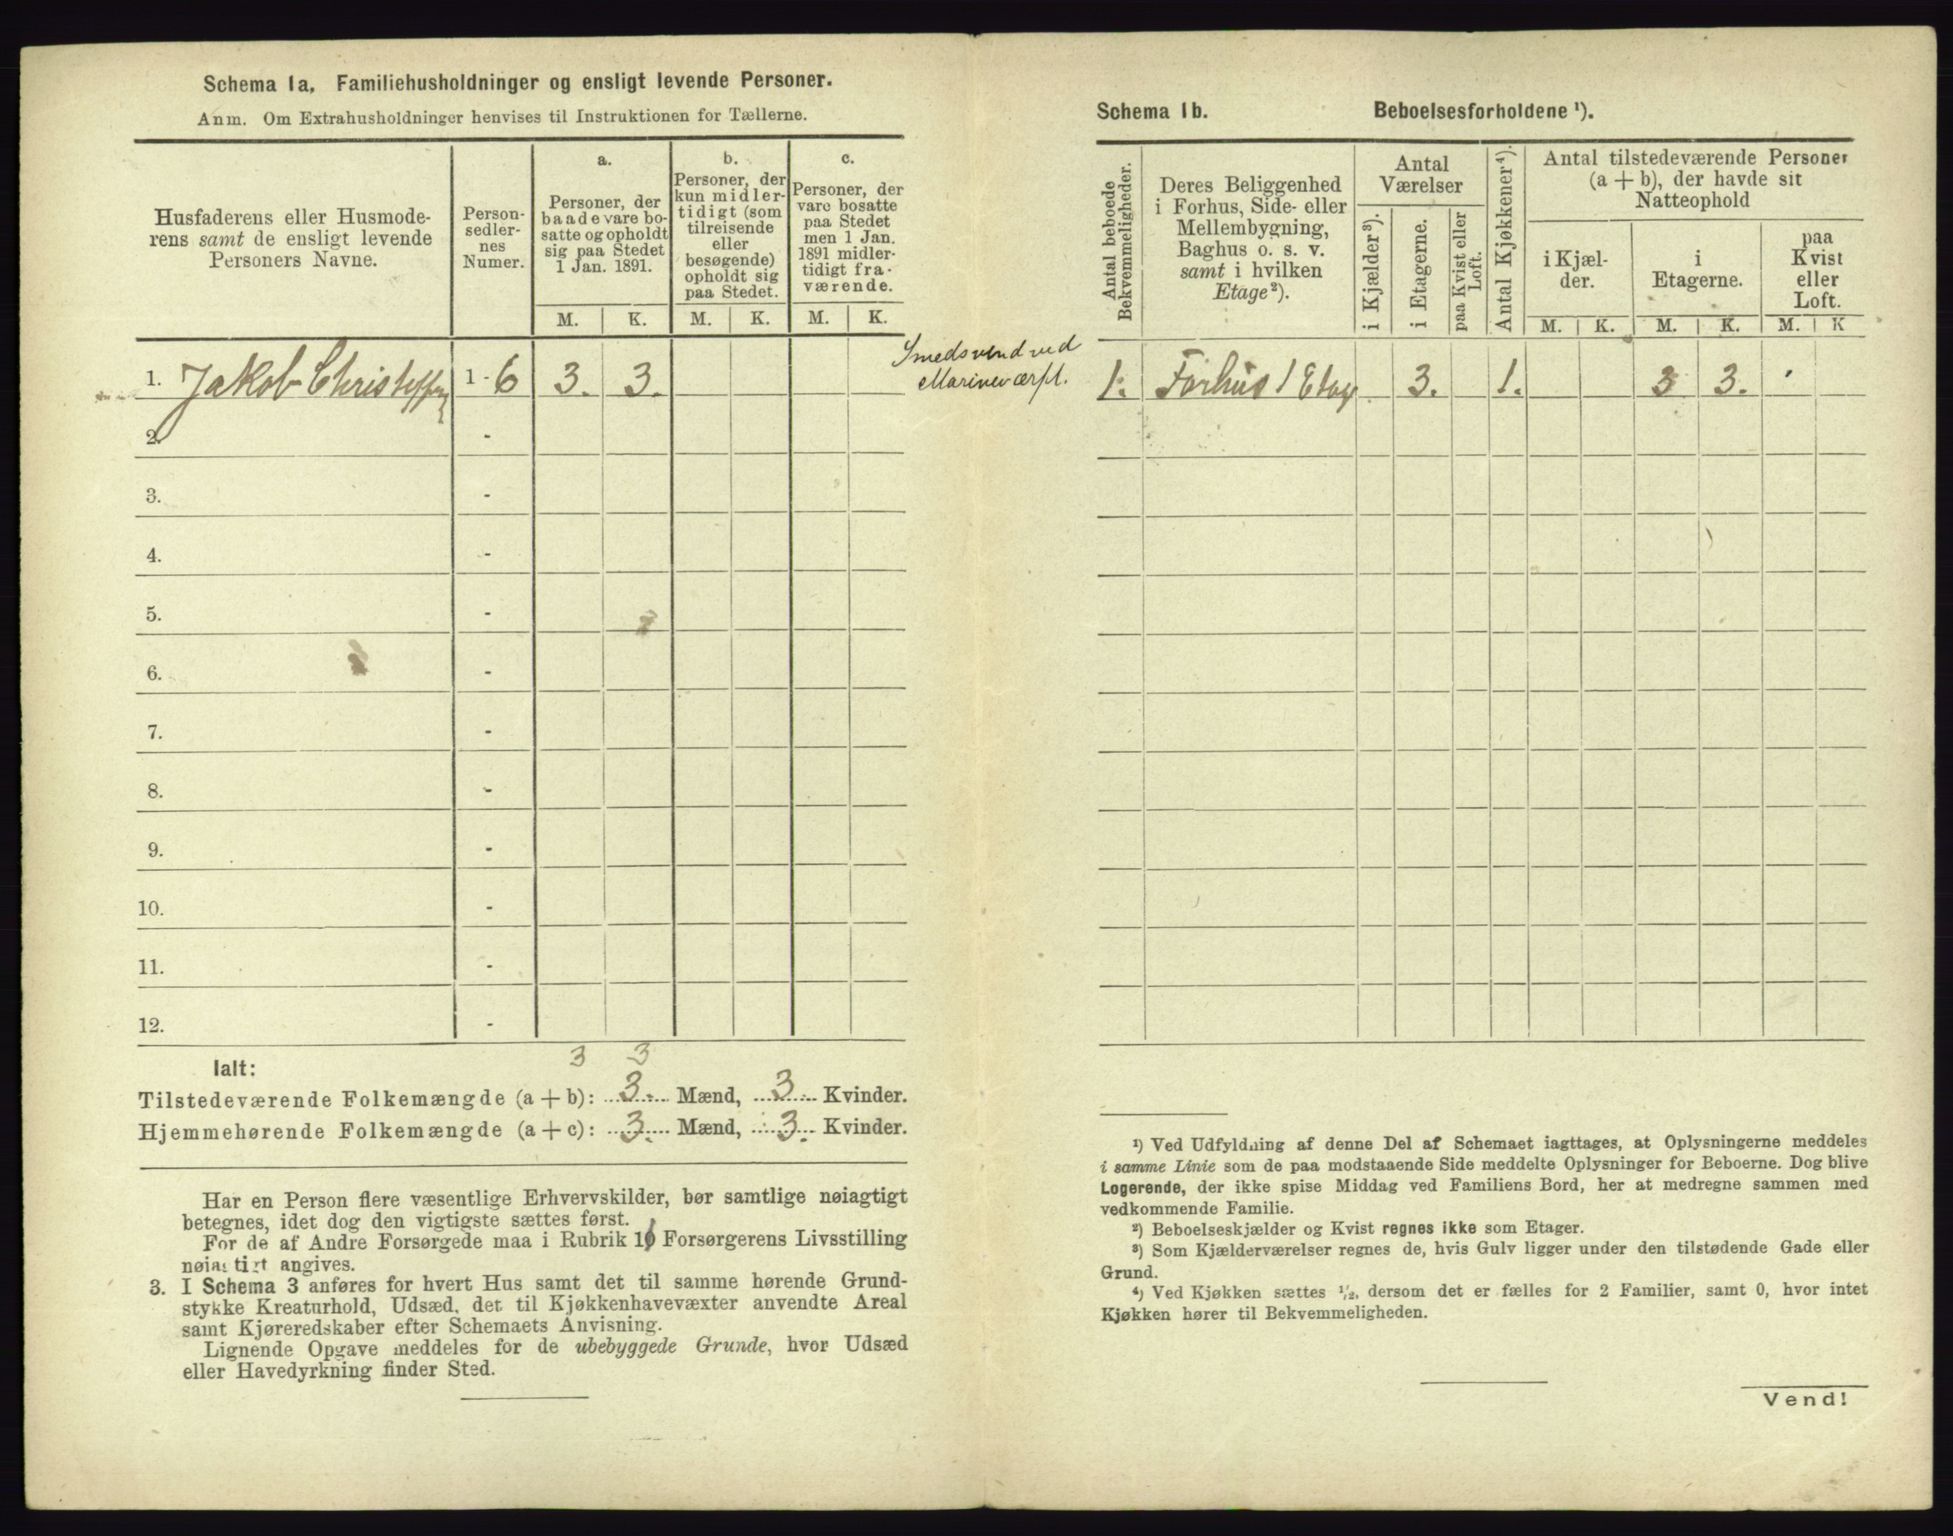 Schema 1a. Familiehusholdninger og ensligt levende Personer.
Anm. Om Extrahusholdninger henvises til Instruktionen for Tællerne.
Husfaderens eller Husmode-
rens samt de ensligt levende
Personers Navne.
Person-
sedler-
nes
Numer.
a.
Personer, der
baade vare bo-
satte og opholdt
sig paa Stedet
1 Jan. 1891.
M. K.
b.
Personer, der
kun midler-
tidigt (som
tilreisende
eller
besøgende)
opholdt sig
paa Stedet.
M. K.
c.
Personer, der
vare bosatte
paa Stedet
men 1 Jan.
1891 midler-
tidigt fra-
værende.
M. K.
1. Jakob Christeffn 1 - 6 3. 3.
Smedsvend ved
Marineværft.
2. -
3. -
4. -
5. -
6. -
7. -
8. -
9. -
10. -
11. -
12. -
3 3
Ialt:
Tilstedeværende Folkemængde (a + b): 3. Mænd, 3. Kvinder.
Hjemmehørende Folkemængde (a + c): 3. Mænd, 3. Kvinder.
Har en Person flere væsentlige Erhvervskilder, bør samtlige nøiagtigt
betegnes, idet dog den vigtigste sættes først.
For de af Andre Forsørgede maa i Rubrik 10 Forsørgerens Livsstilling
nøiagtigt angives.
3. I Schema 3 anføres for hvert Hus samt det til samme hørende Grund-
stykke Kreaturhold, Udsæd, det til Kjøkkenhavevæxter anvendte Areal
samt Kjøreredskaber efter Schemaets Anvisning.
Lignende Opgave meddeles for de ubebyggede Grunde, hvor Udsæd
eller Havedyrkning finder Sted.
Schema 1b. Beboelsesforholdene ¹).
Antal beboede
Bekvemmeligheder.
Deres Beliggenhed
i Forhus, Side- eller
Mellembygning,
Baghus o. s. v.
samt i hvilken
Etage²).
Antal
Værelser
i Kjælder³).
i Etagerne.
paa Kvist eller
Loft.
Antal Kjøkkener⁴).
Antal tilstedeværende Personer
(a + b), der havde sit
Natteophold
i Kjæl-
der.
M. K.
i
Etagerne.
M. K.
paa
Kvist
eller
Loft.
M. K
1. Forhus 1 Etage 3. 1. 3 3.
¹) Ved Udfyldning af denne Del af Schemaet iagttages, at Oplysningerne meddeles
i samme Linie som de paa modstaaende Side meddelte Oplysninger for Beboerne. Dog blive
Logerende, der ikke spise Middag ved Familiens Bord, her at medregne sammen med
vedkommende Familie.
²) Beboelseskjælder og Kvist regnes ikke som Etager.
³) Som Kjælderværelser regnes de, hvis Gulv ligger under den tilstødende Gade eller
Grund.
⁴) Ved Kjøkken sættes ½, dersom det er fælles for 2 Familier, samt 0, hvor intet
Kjøkken hører til Bekvemmeligheden.
Vend!